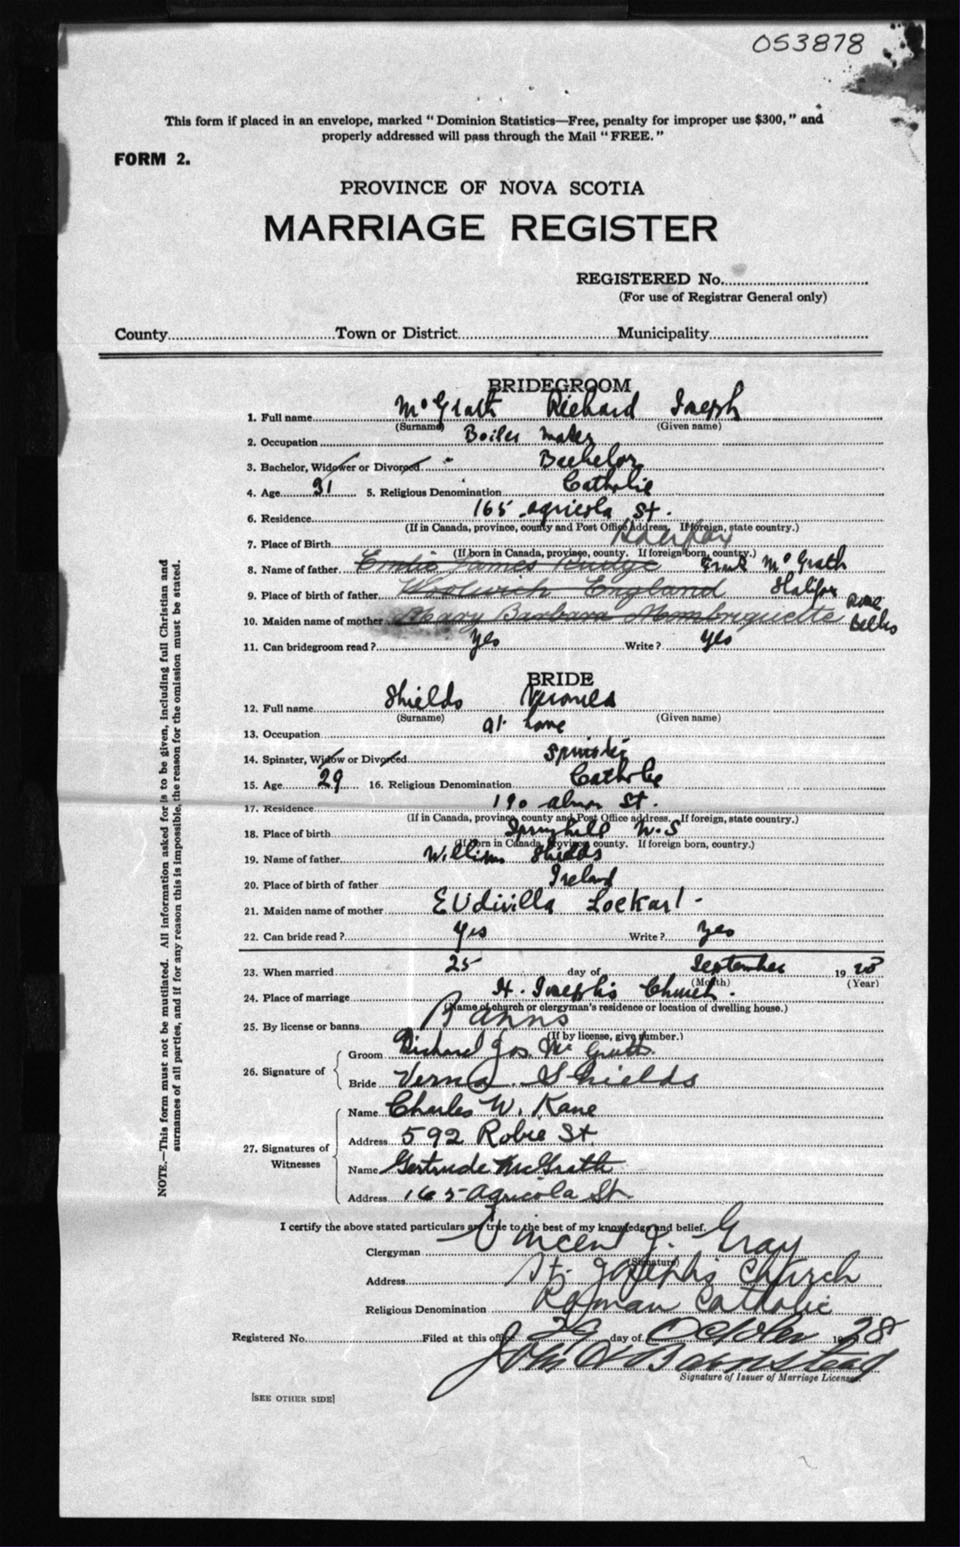 053878
This form if placed in an envelope, marked "Dominion Statistics—Free, penalty for improper use $300," and
properly addressed will pass through the Mail "FREE."
FORM 2.
PROVINCE OF NOVA SCOTIA
MARRIAGE REGISTER
REGISTERED No.
(For use of Registrar General only)
County Town or District Municipality
BRIDEGROOM
1. Full name McGrath Richard Joseph
(Surname) (Given name)
2. Occupation Boiler maker
3. Bachelor, Widower or Divorced Bachelor
4. Age 31 5. Religious Denomination Catholic
6. Residence 165 Agricola St.
(If in Canada, province, county and Post Office Address. If foreign, state country.)
7. Place of Birth Halifax
(If born in Canada, province, county. If foreign born, country.)
8. Name of father James McGrath
9. Place of birth of father Woolwich England Halifax
10. Maiden name of mother Mary Barbara
11. Can bridegroom read? Yes Write? Yes
BRIDE
12. Full name Shields Veronica
(Surname) (Given name)
13. Occupation at home
14. Spinster, Widow or Divorced Spinster
15. Age 29 16. Religious Denomination Catholic
17. Residence 190 Almon St.
(If in Canada, province, county and Post Office address. If foreign, state country.)
18. Place of birth Springhill N.S
(If born in Canada, Province, county. If foreign born, country.)
19. Name of father William Shields
20. Place of birth of father Ireland
21. Maiden name of mother Lockart
22. Can bride read? Yes Write? Yes
23. When married 25 day of September 1928
(Month) (Year)
24. Place of marriage St. Joseph's Church.
(Name of church or clergyman's residence or location of dwelling house.)
25. By license or banns Banns
(If by license, give number.)
26. Signature of
Groom Richard Jos. McGrath
Bride Verna Shields
27. Signatures of Witnesses
Name Charles W. Kane
Address 592 Robie St
Name Gertrude McGrath
Address 165 Agricola St.
I certify the above stated particulars are true to the best of my knowledge and belief.
Clergyman Vincent J. Gray
(Signature)
Address St. Joseph's Church
Religious Denomination Roman Catholic
Registered No. Filed at this office 29 day of October 1928
John Barnstead
Signature of Issuer of Marriage Licenses.
[SEE OTHER SIDE]
NOTE.—This form must not be mutilated. All information asked for is to be given, including full Christian and
surnames of all parties, and if for any reason this is impossible, the reason for the omission must be stated.